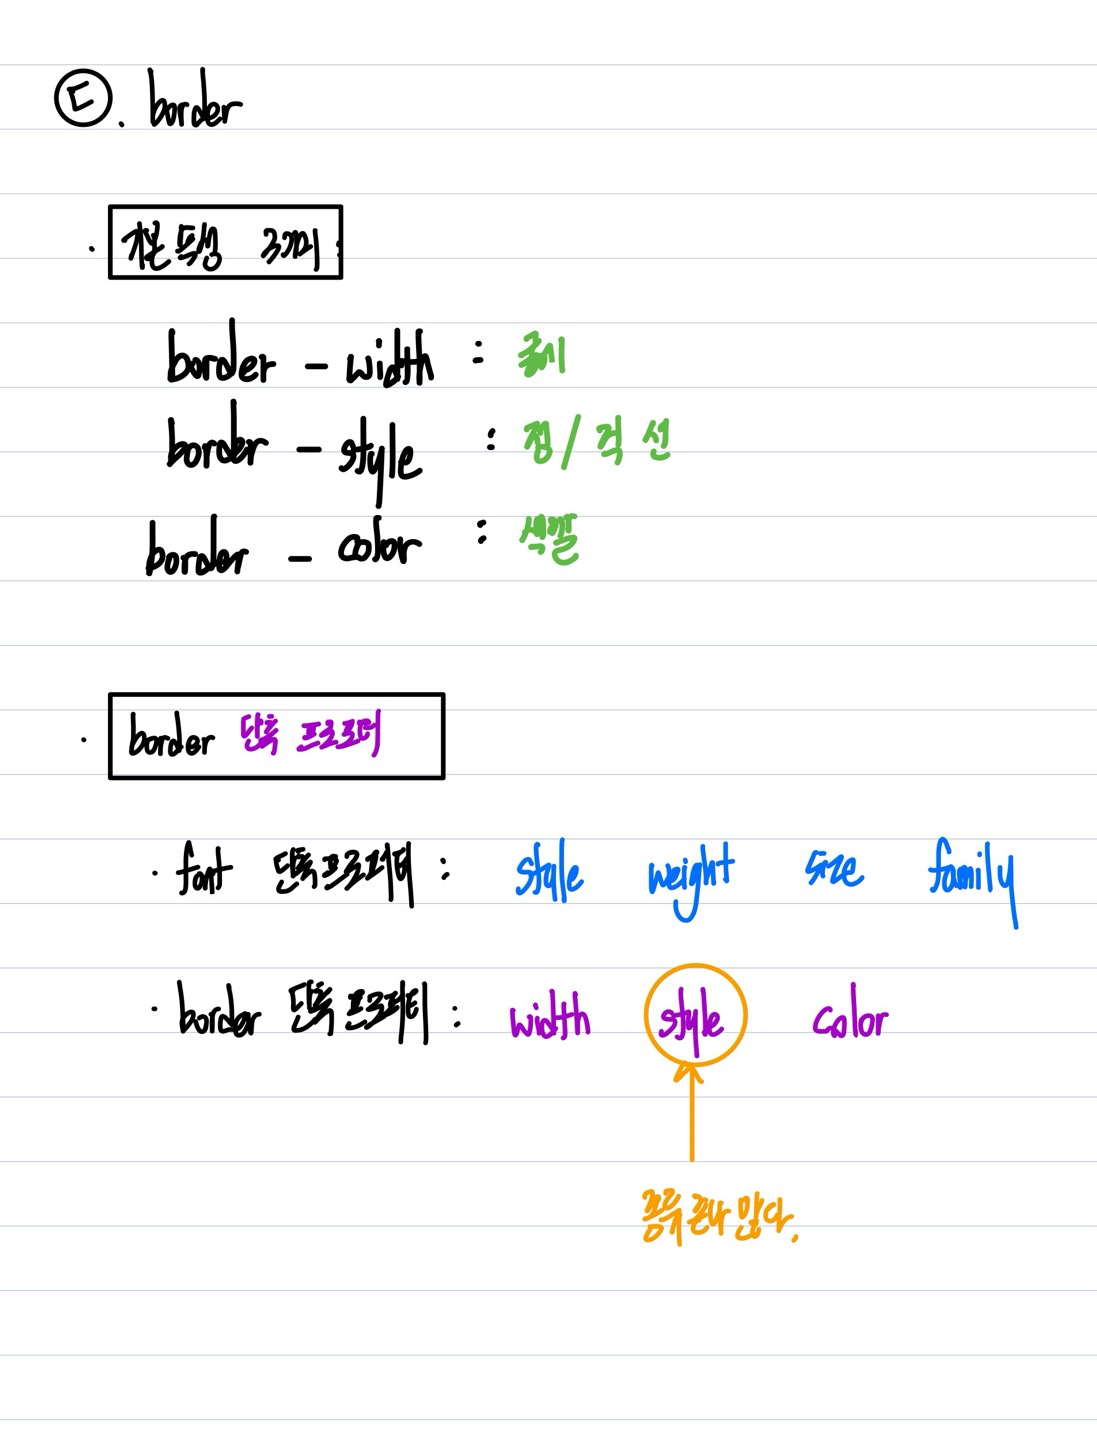 ㄷ. border
· 기본 특성 3가지 :
border - width : 굵기
border - style : 점/직 선
border - color : 색깔
· border 단축 프로퍼티
· font 단축 프로퍼티 : style weight size family
· border 단축 프로퍼티 : width style color
종류 존나 많다.